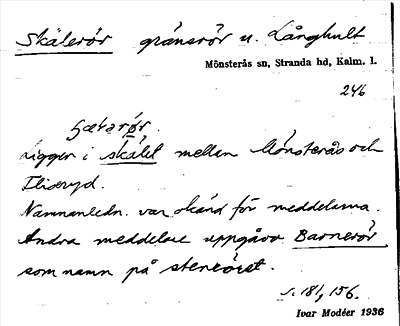 Skälerör gränsrör u. Långhult
Mönsterås sn, Stranda hd, Kalm. l.
246
Ligger i skälet mellan Mönsterås och
Fliseryd.
Namnanledn. var okänd för meddelarna.
Andra meddelare uppgåvo Barnerör
som namn på stenröset.
s. 181, 156.
Ivar Modéer 1936